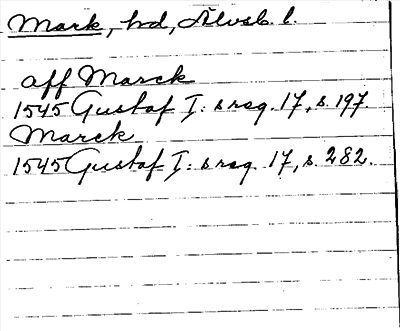 Mark, hd, Älvsb. l.
aff Marck
1545 Gustaf I:s reg. 17, s. 197.
Marck
1545 Gustaf I:s reg. 17, s. 282.